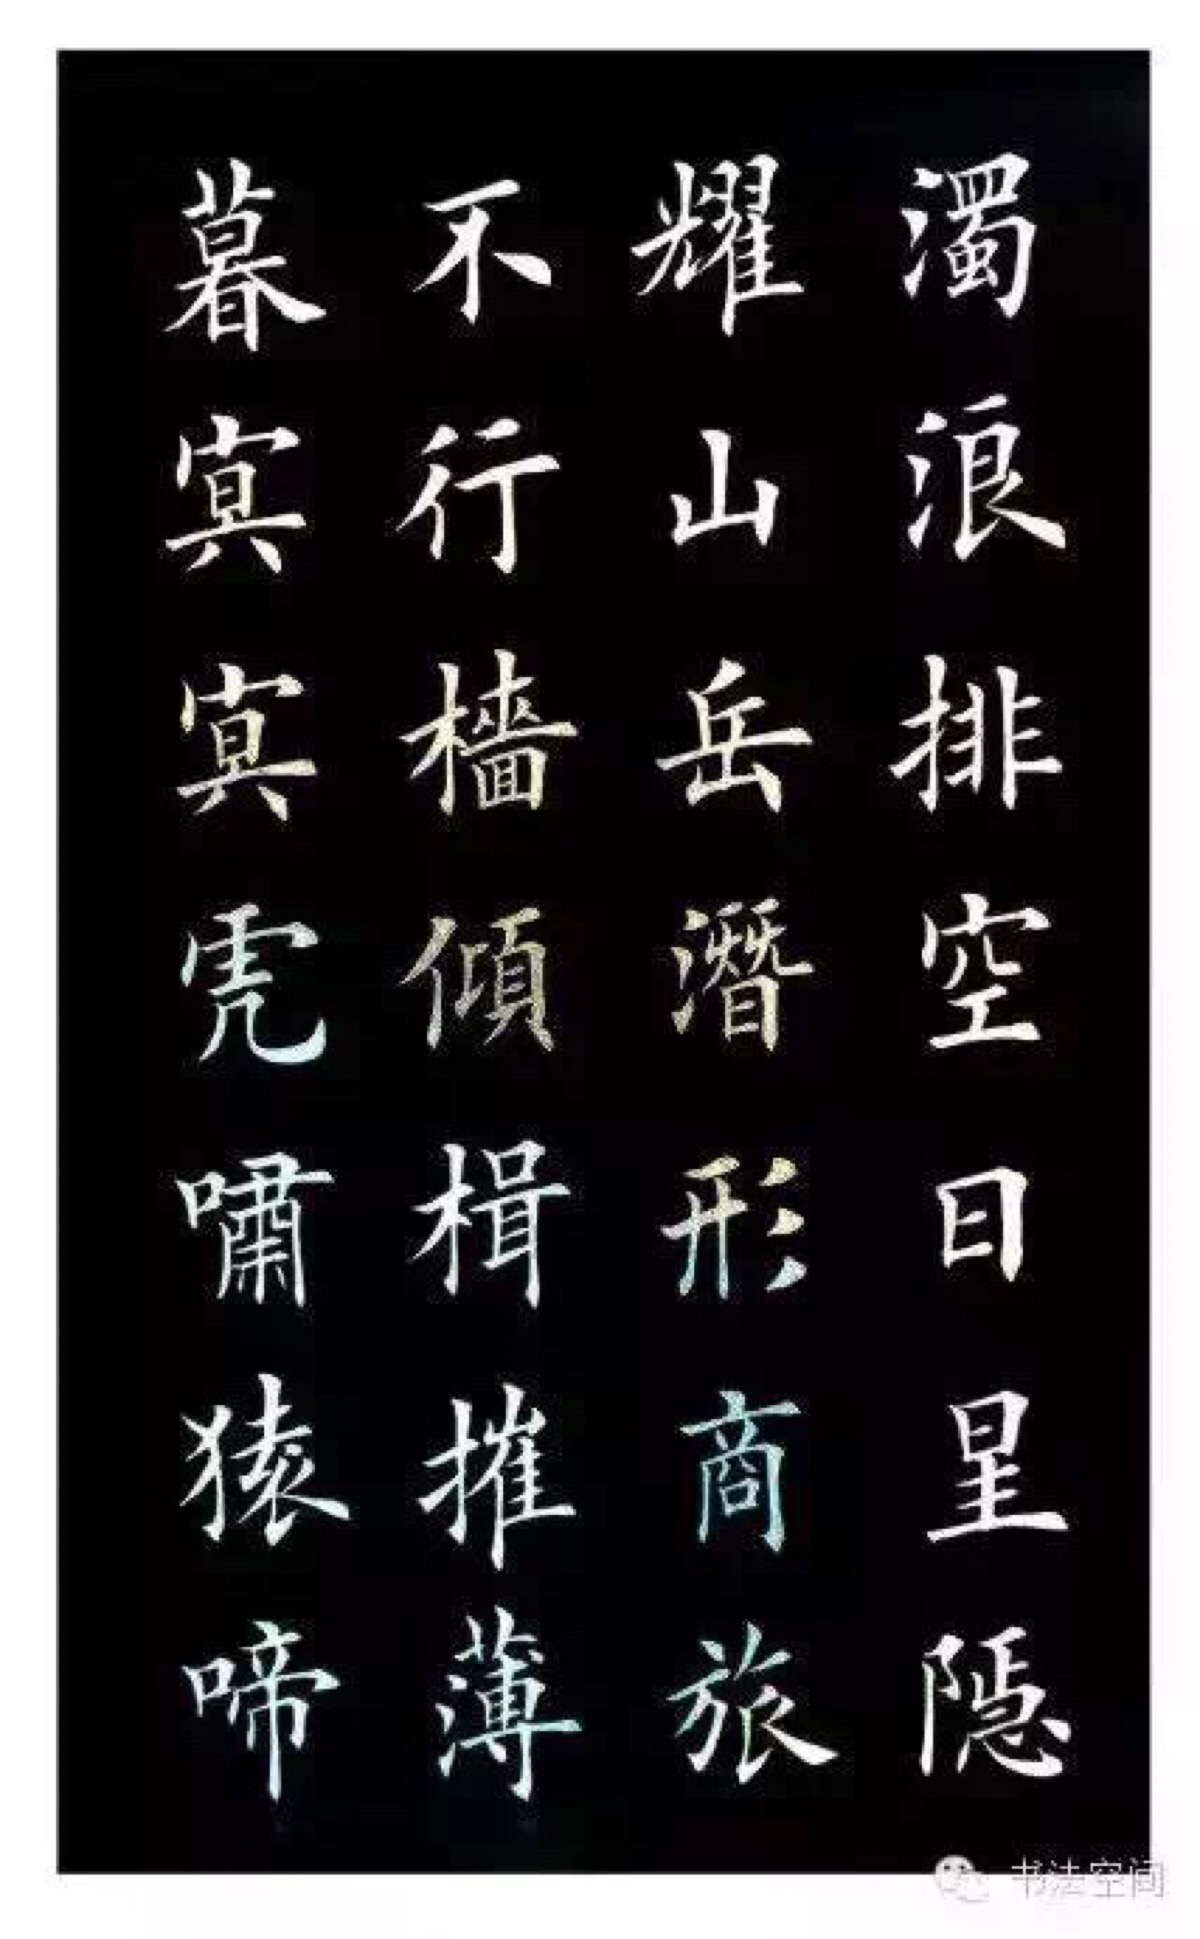 濁浪排空日星隱
耀山岳潛形商旅
不行檣傾楫摧薄
暮冥冥虎嘯猿啼
书法空间